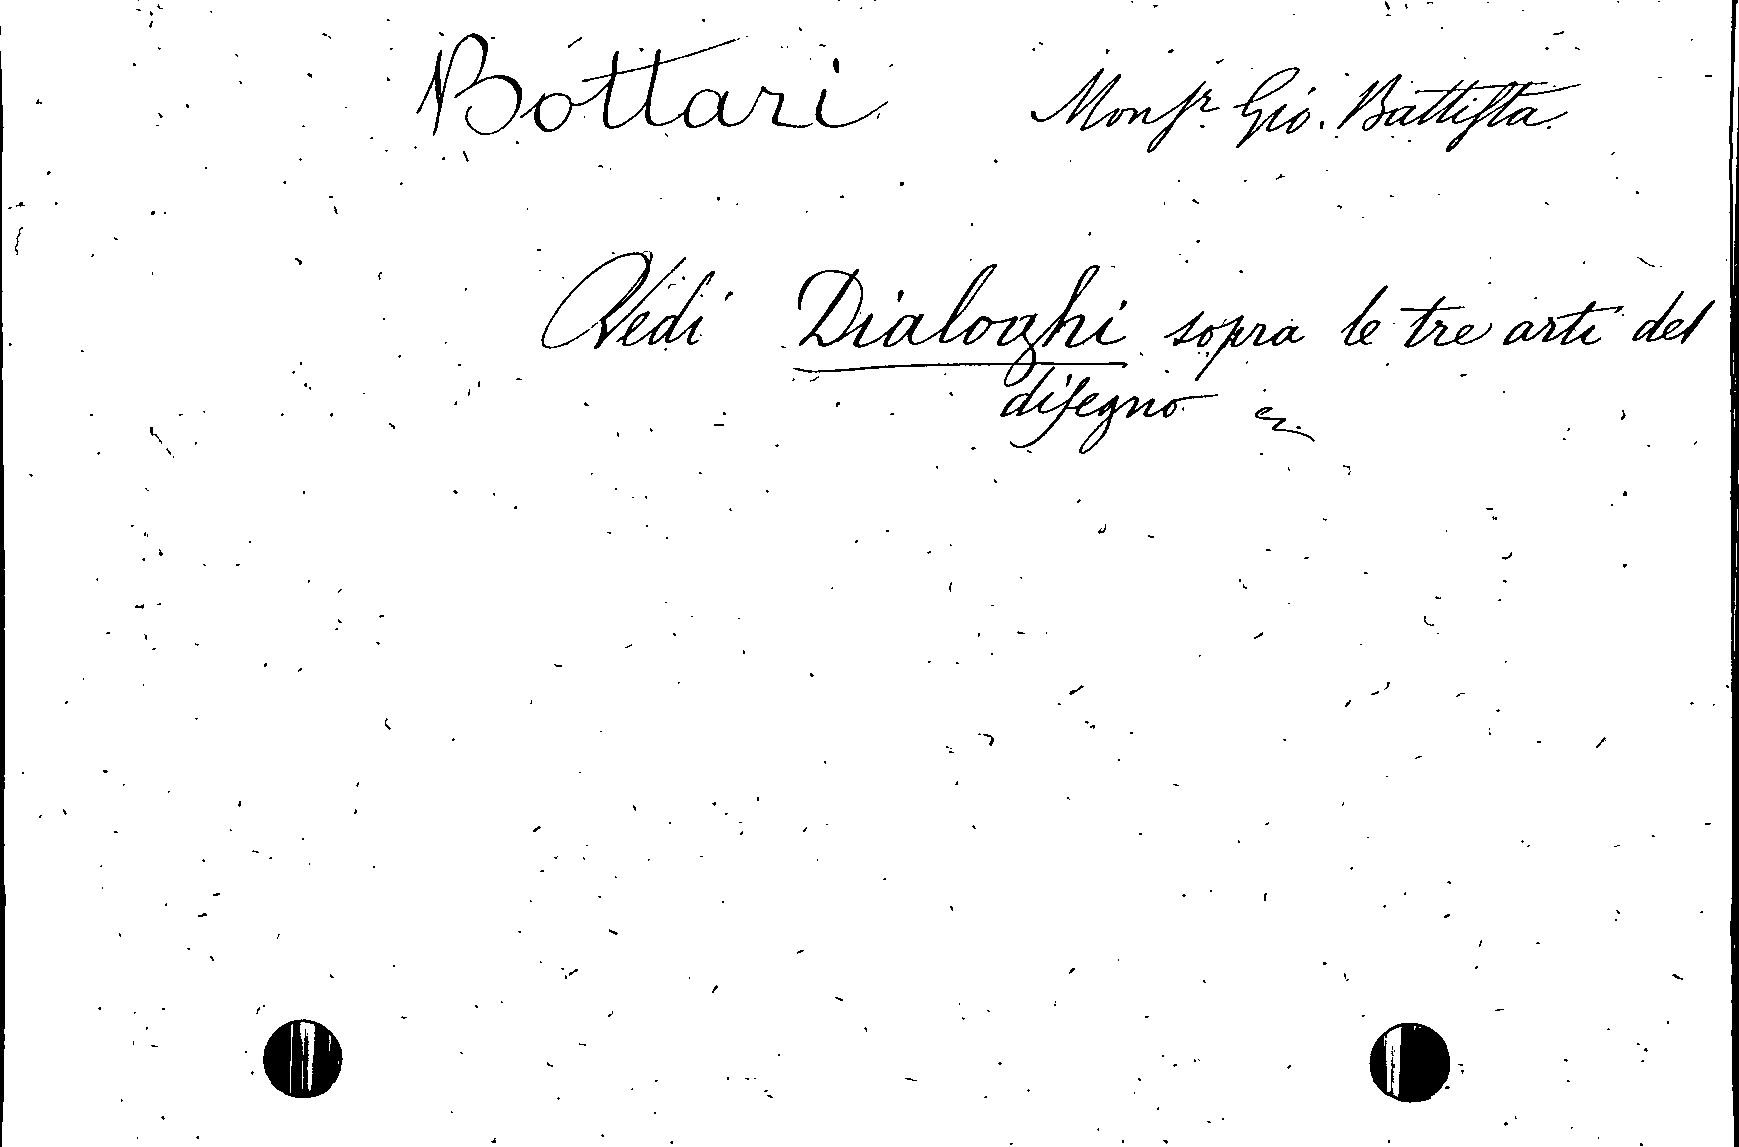 Bottari Monſr. Gio. Battiſta.
Vedi Dialoghi sopra le tre arti del
diſegno